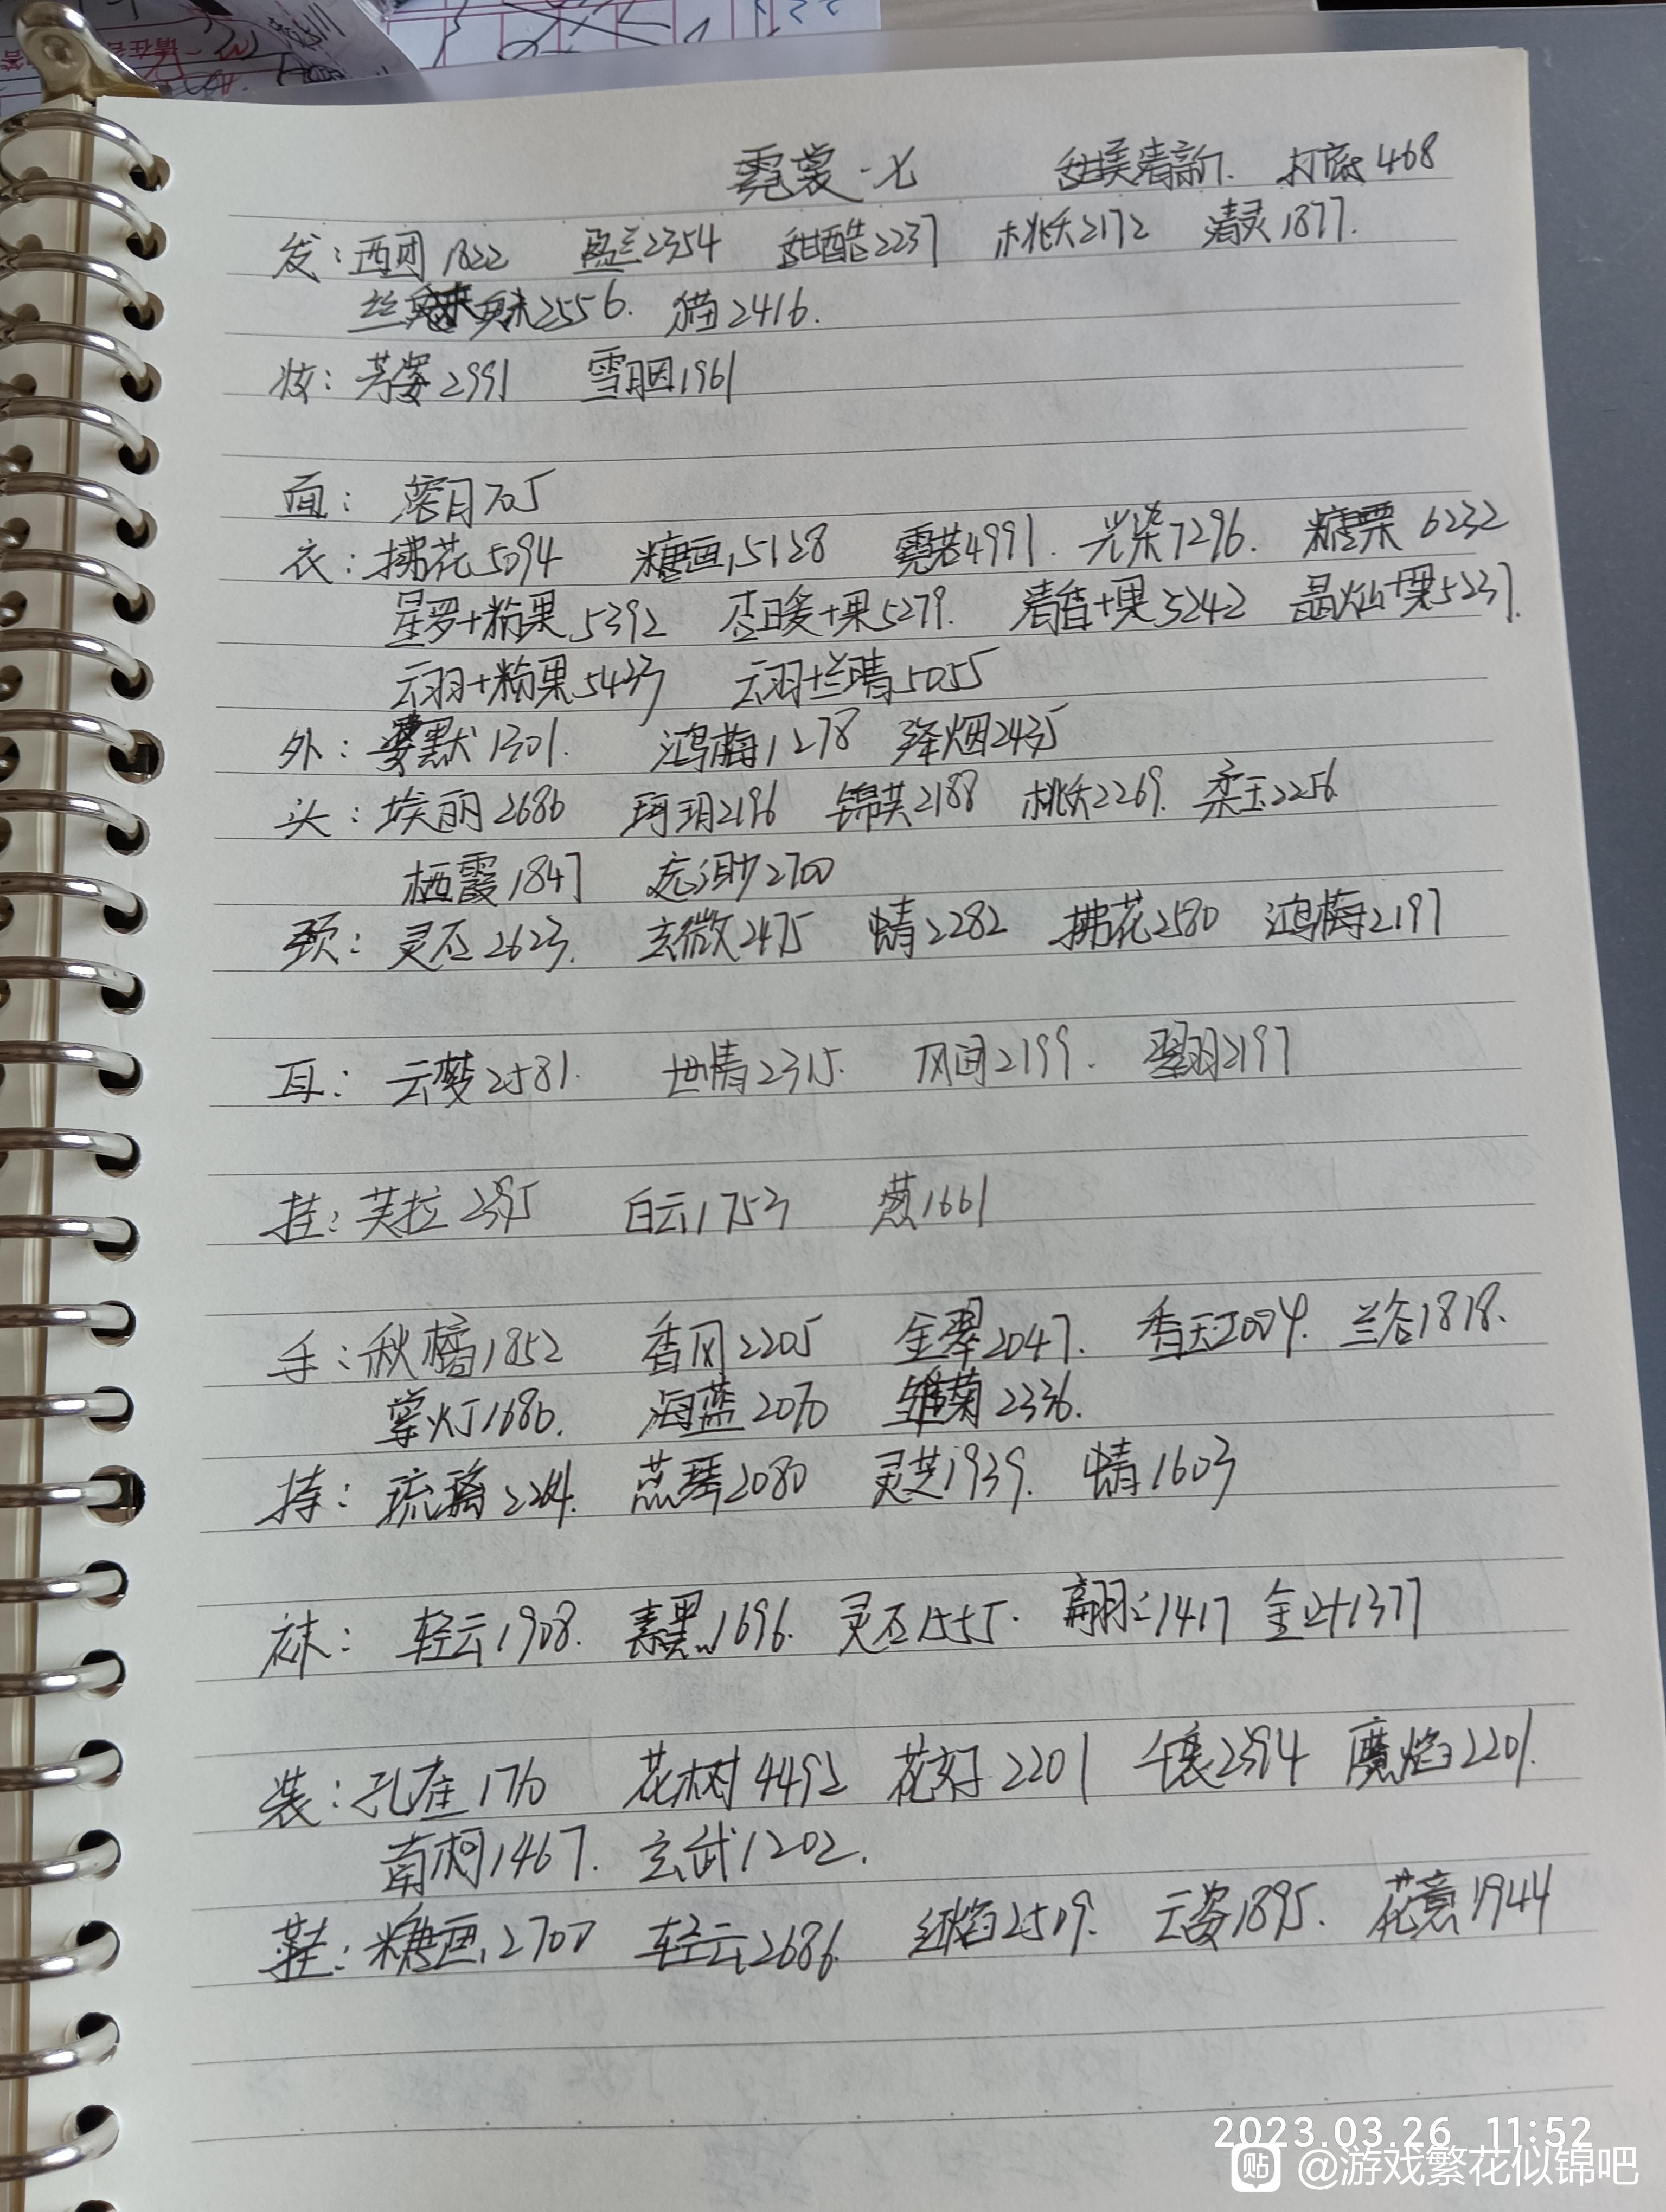 霓裳·乂 甜美清新. 打底468
发: 西团1822 盈兰2354 甜酷2237 桃夭2172 清灵1877.
丝 2556. 猫2416.
妆: 芳姿2991 雪胭1961
面: 落月705
衣: 拂花5094 糖画5128 霓若4991. 光柒7296. 糖栗6232
星罗+粉果5392 杳暖+果5279. 清香+果5242 晶灿+果5237.
云羽+粉果5433 云羽+兰晴5055
外: 婆默1301. 鸿梅1278 绛烟2435
头: 埃丽2686 珂玥2196 锦芙2188 桃夭2269. 柔玉2256
栖霞1847 2700
颈: 灵石2623. 玄微2475 情2282 拂花2580 鸿梅2197
耳: 云梦2581. 世情2315. 风间2199. 翠羽2197
挂: 芙拉2395 白云1753 葱1661
手: 秋橘1852 香风2205 金翠2047. 香天2004. 兰谷1818.
掌灯1686. 海蓝2070 雏菊2336.
持: 琉璃2264. 燕琴2080 灵芝1939. 情1603
袜: 轻云1908. 素黑1696. 灵石1555. 1417 金叶1377
装: 孔雀1710 花树4492 花好2201 千裹2394 魔焰2201.
南柯1467. 玄武1202.
鞋: 糖画2700 轻云2686. 红焰2509. 云姿1895. 花意1944
2023.03.26 11:52
贴 @游戏繁花似锦吧